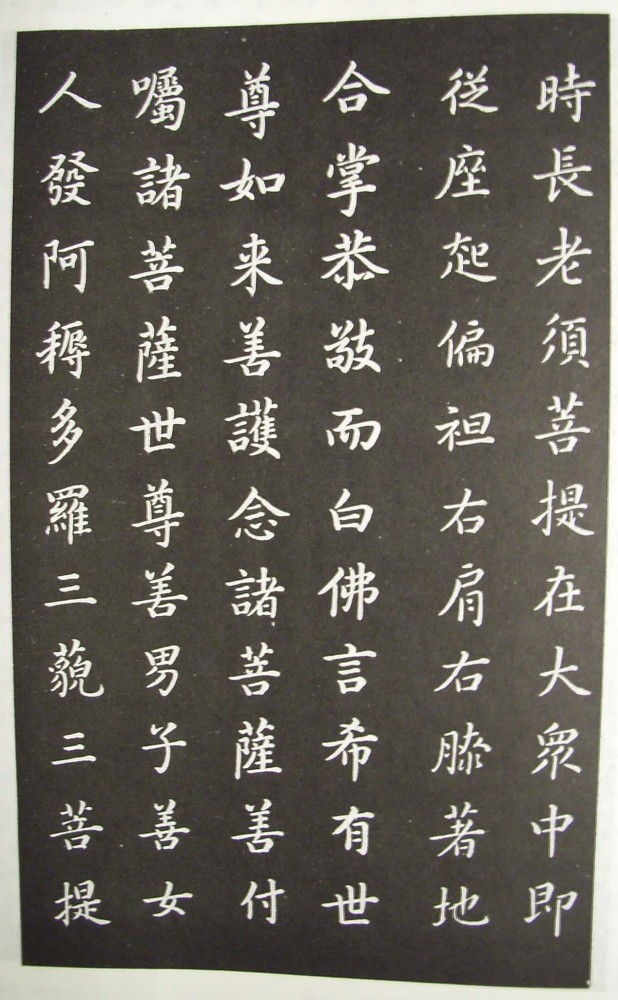 時長老須菩提在大眾中即
從座起偏袒右肩右膝著地
合掌恭敬而白佛言希有世
尊如来善護念諸菩薩善付
囑諸菩薩世尊善男子善女
人發阿耨多羅三藐三菩提